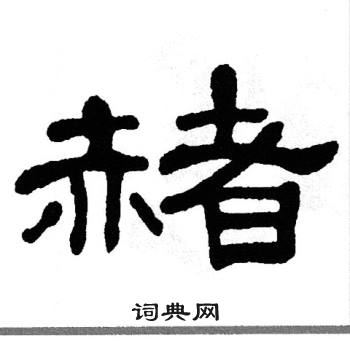 赭
词典网